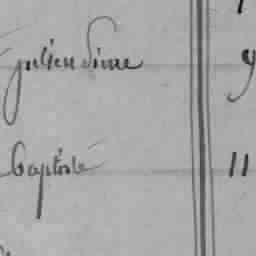 julien Sime 9
baptiste 11